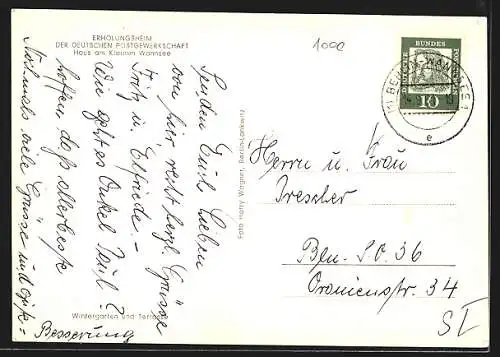 ERHOLUNGSHEIM
DER DEUTSCHEN POSTGEWERKSCHAFT
Haus am Kleinen Wannsee
1000
DEUTSCHE BUNDESPOST
10
BERLIN-WANNSEE
e
Senden Euch Lieben
von hier recht herzl. Grüsse
Fritz u. Elfriede. –
Wie geht es Onkel Paul?
hoffen daß allerbeste
Nochmals viele Grüsse und gute –
Besserung
Wintergarten und Terrasse
Foto Harry Wagner, Berlin-Lankwitz
Herrn u. Frau
Drescher
Bln. S.O. 36
Oranienstr. 34
SI